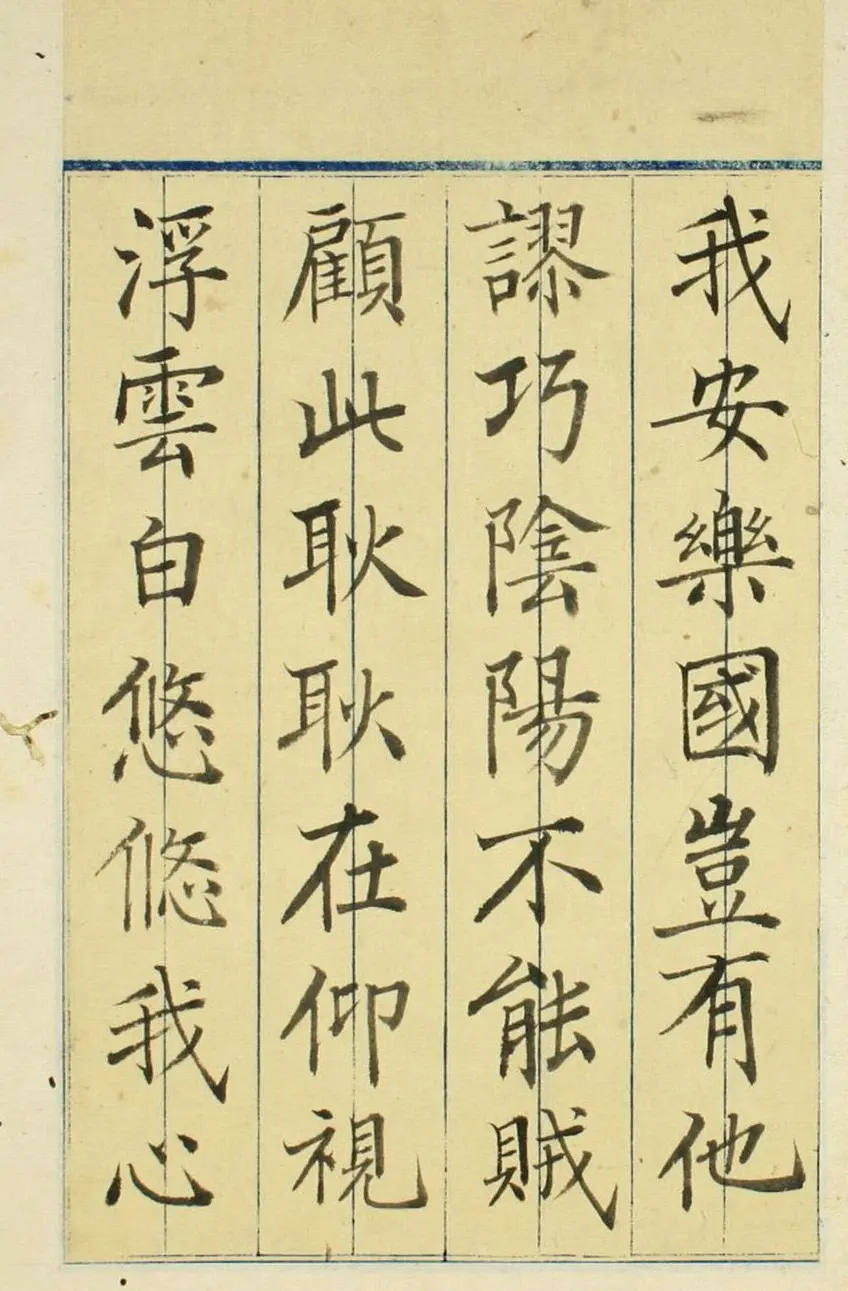 我安樂國豈有他
謬巧陰陽不能賊
顧此耿耿在仰視
浮雲白悠悠我心